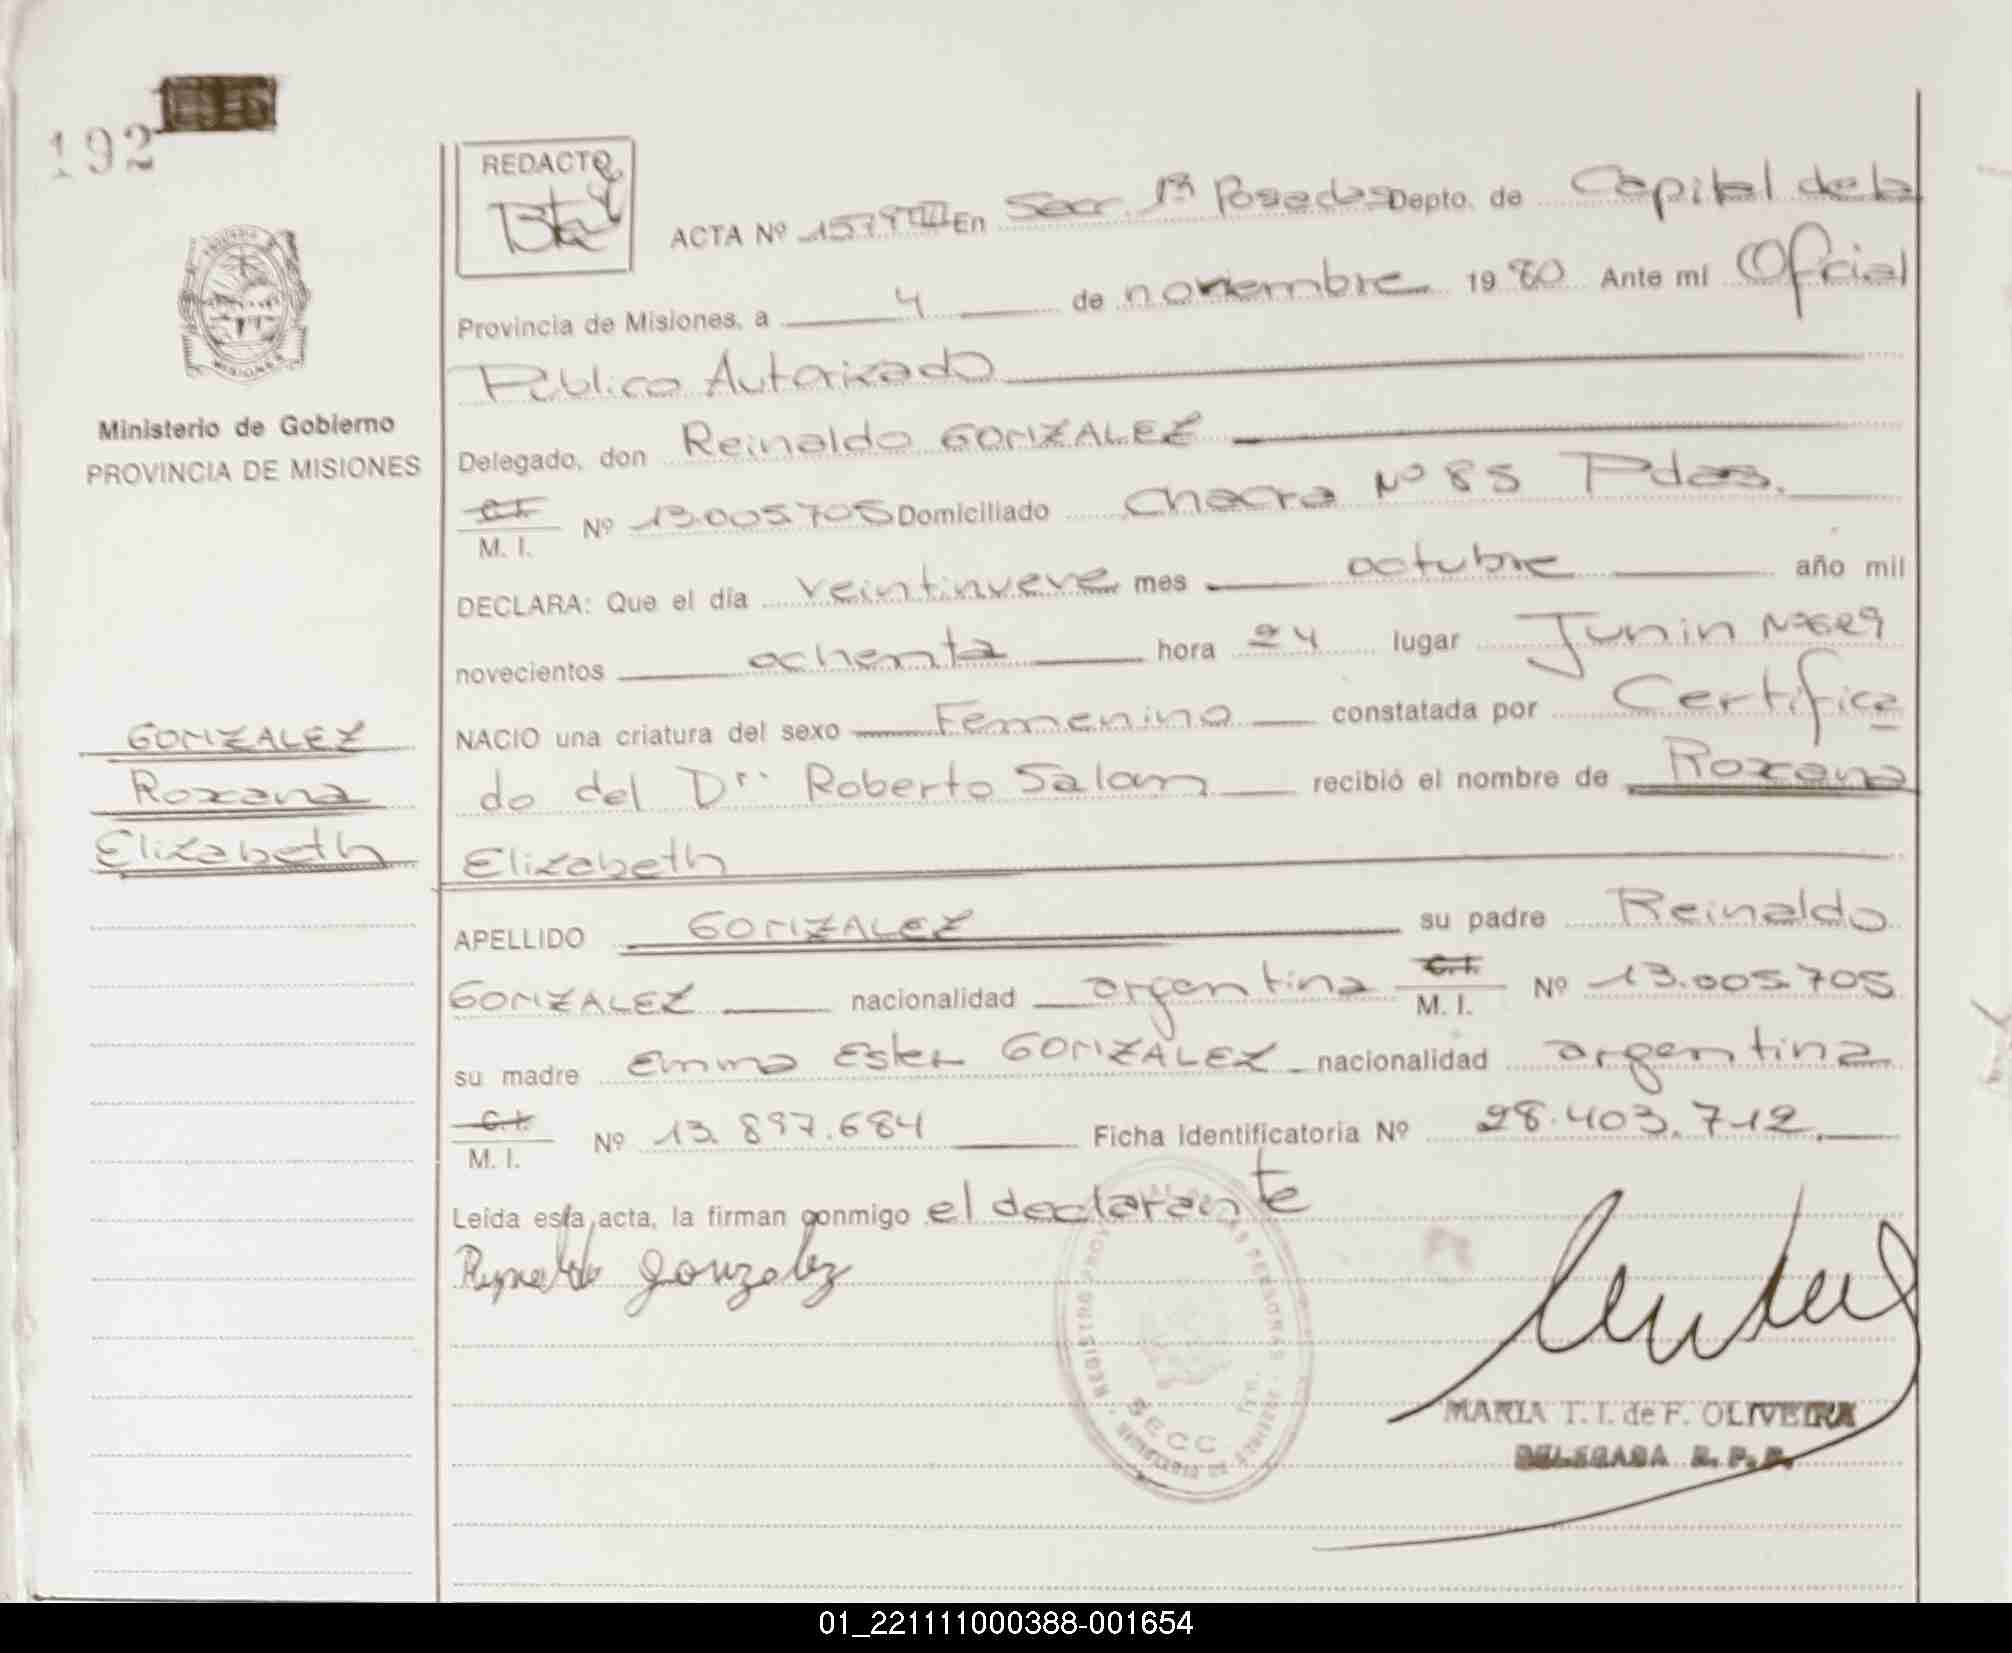 192
REDACTO
ACTA Nº 1579 III En Secc 1ª Posadas Depto. de Capital de la
Provincia de Misiones, a 4 de noviembre 1980 Ante mí Oficial
Público Autorizado
Ministerio de Gobierno
PROVINCIA DE MISIONES
Delegado, don Reinaldo GONZALEZ
C.I.
M. I. Nº 13.005.705 Domiciliado Chacra Nº 85 Pdas.
DECLARA: Que el día veintinueve mes octubre año mil
novecientos ochenta hora 24 lugar Junin Nº 629
NACIO una criatura del sexo Femenino constatada por Certifica
do del Dr. Roberto Salom recibió el nombre de Roxana
Elizabeth
GONZALEZ
Roxana
Elizabeth
APELLIDO GONZALEZ su padre Reinaldo
GONZALEZ nacionalidad argentina C.I. M. I. Nº 13.005.705
su madre Emma Ester GONZALEZ nacionalidad argentina
C.I.
M. I. Nº 13.897.684 Ficha identificatoria Nº 28.403.712.
Leída esta acta, la firman conmigo el declarante
Reynaldo gonzalez
SECC
MARIA T. I. de F. OLIVEIRA
DELEGADA R. P. P.
01_221111000388-001654